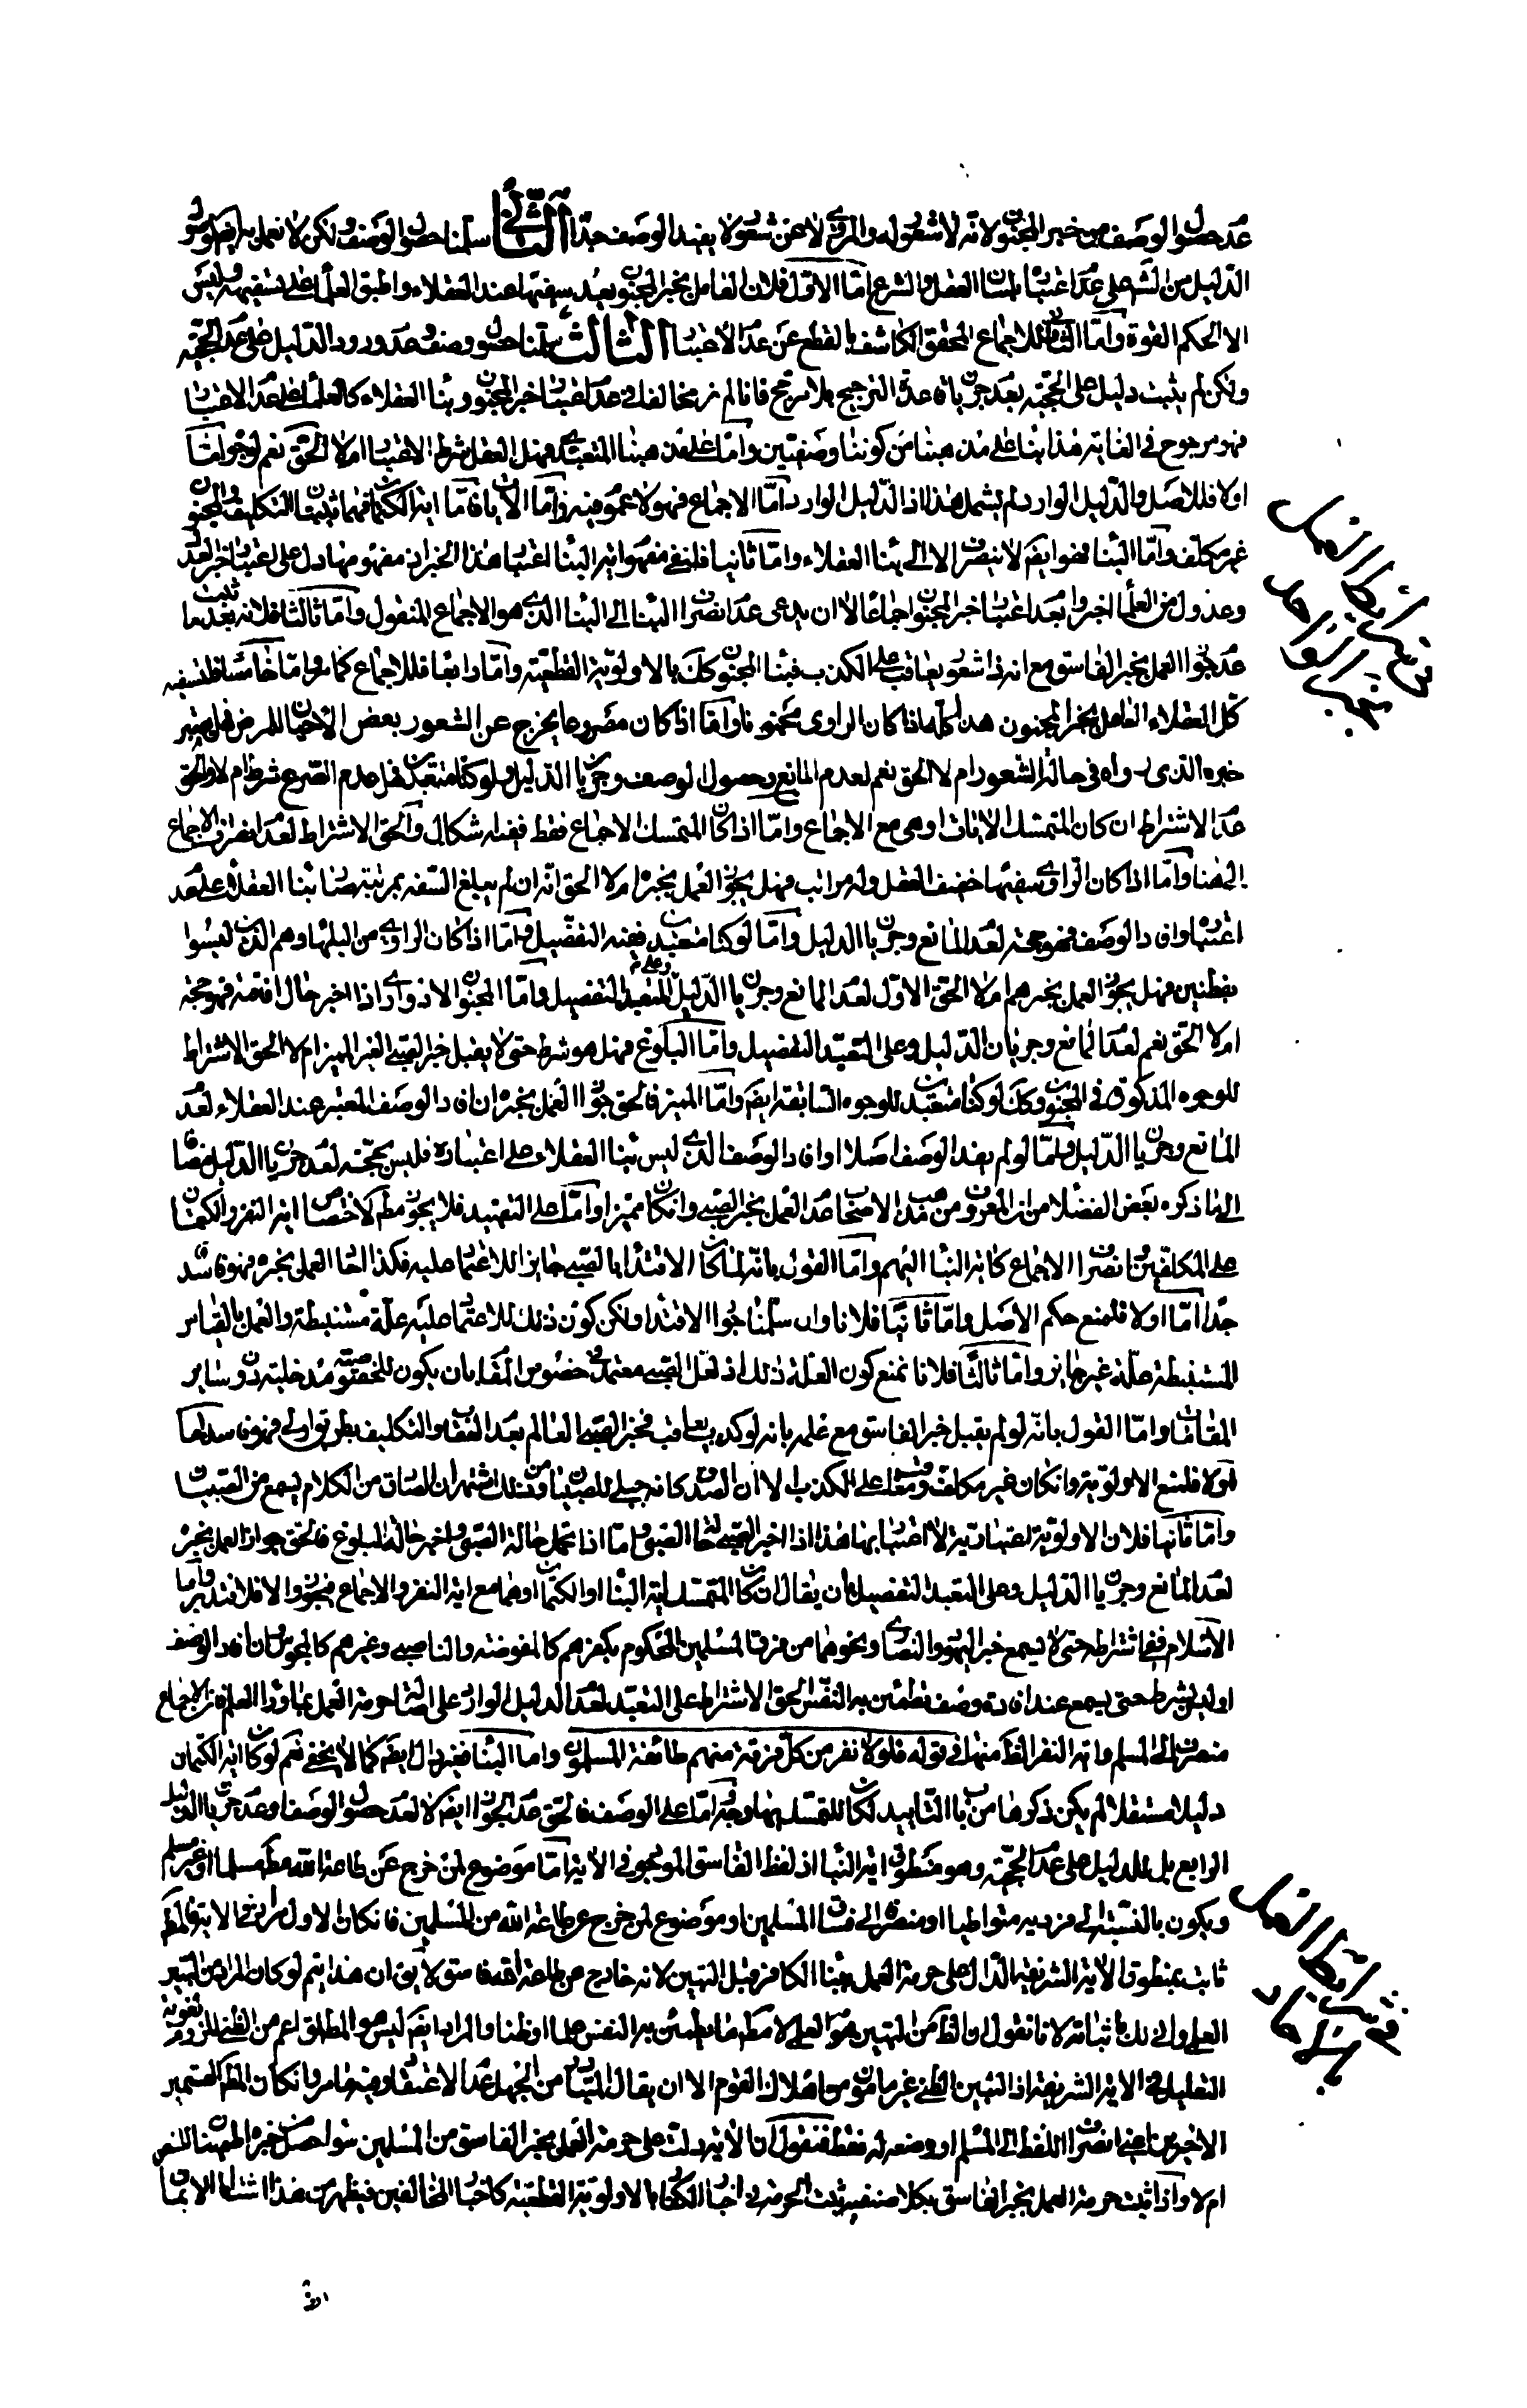 عدم حصول الوصف من خبر المجنون لانه لا شعور له والمروى لا عن شعور لا يفيد الوصف جدا الثانى سلمنا حصول الوصف ولكن لا نعمل به ايضا
الدليل من الشرع على عدم اعتباره بلسان العقل والشرع امّا الاول فلان العامل بخبر المجنون يعد سفيها عند العقلاء واطبق العلماء على تسفيهه وليس
الا لحكم القوة وامّا الثانى فللاجماع المحقق الكاشف بالقطع عن عدم الاعتبار الثالث سلمنا حصول وصف وعدم ورود الدليل على عدم الحجية
ولكن لم يثبت دليل على الحجية بعد جريان قاعدة الترجيح بلا مرجح فانا لم نر مخالفا فى عدم اعتبار خبر المجنون وبناء العقلاء كالعلماء على عدم الاعتبار
فهو مرجوح فى الغاية هذا بناء على مذهبنا من كوننا وصفيين وامّا على مذهبنا التعبدى فهل العقل شرط الاعتبار ام لا الحق نعم لوجوه امّا
اولا فللاصل والدليل الوارد لم يشمل هذا اذ الدليل الوارد امّا الاجماع فهو لا عموم فيه وامّا الآيات فامّا اية الكتمان فهما يثبتان التكليف والمجنون
غير مكلف وامّا النبأ فهو ايضا لا ينصرف الا الى بناء العقلاء وامّا ثانيا فلنفى مفهوم اية النبأ اعتبار هذا الخبر اذ مفهومها دل على اعتبار خبر العدل
وعدول من العلماء اخبروا بعدم اعتبار خبر المجنون اجماعا الا ان يدعى عدم انصراف النبأ الى النبأ الذى هو الاجماع المنقول وامّا ثالثا فلانه بعد ما ثبت
عدم جواز العمل بخبر الفاسق مع انه ذا شعور يعاقب على الكذب فنبأ المجنون كك بالاولوية القطعية وامّا رابعا فللاجماع كما مر وامّا خامسا فلتسفيه
كل العقلاء العامل بخبر المجنون هذا كله اذا كان الراوى مجنونا وامّا اذا كان مصروعا يخرج عن الشعور بعض الاحيان للمرض فهل يعتبر
خبره الذى رواه فى حالة الشعور ام لا الحق نعم لعدم المانع وحصول الوصف وجريان الدليل ولو كنا متعبدين فهل عدم الصرع شرط ام لا والحق
عدم الاشتراط ان كان المتمسك الآيات او هى مع الاجماع وامّا اذا كان المتمسك الاجماع فقط ففيه اشكال والحق الاشتراط لعدم انصراف الاجماع
الى هنا وامّا اذا كان الراوى سفيها خفيف العقل وله مراتب فهل يجوز العمل بخبره ام لا الحق انه ان لم يبلغ السفه بمرتبة صار بناء العقلاء على عدم
اعتبارها وافاد الوصف فهو حجة لعدم المانع وجريان الدليل وامّا لو كنا متعبدين ففيه التفصيل وامّا اذا كان الراوى من البلهاء وهم الذين ليسوا
بفطنين فهل يجوز العمل بخبرهم ام لا الحق الاول لعدم المانع وجريان الدليل وعلى التعبد التفصيل وامّا المجنون الادوارى اذا اخبر حال افاقته فهو حجة
ام لا الحق نعم لعدم المانع وجريان الدليل وعلى التعبد التفصيل وامّا البلوغ فهل هو شرط حتى لا يقبل خبر الصبى الغير المميز ام لا الحق الاشتراط
للوجوه المذكورة فى المجنون وكك لو كنا متعبدين للوجوه السابقة ايضا وامّا المميز فالحق جواز العمل بخبره ان افاد الوصف المعتبر عند العقلاء لعدم
المانع وجريان الدليل وامّا لو لم يفد الوصف اصلا او افاد الوصف الذى ليس بناء العقلاء على اعتباره فليس بحجة لعدم جريان الدليل مضافا
الى ما ذكره بعض الفضلاء من ان المعروف من مذهب الاصحاب عدم العمل بخبر الصبى وان كان مميزا وامّا على التعبد فلا يجوز مطم لاختصاص اية النفر والكتمان
على المكلفين وانصراف الاجماع كاية النبأ اليهم وامّا القول بانه لما كان الاقتداء بالصبى جايز اللاعتماد عليه فكذا الحال العمل بخبره فهو فاسد
جدا امّا اولا فلمنع حكم الاصل وامّا ثانيا فلانا وان سلمنا جواز الاقتداء ولكن كون ذلك للاعتماد عليه علة مستنبطة والعمل بالقياس
المستنبطة علة غير جايز وامّا ثالثا فلانا نمنع كون العلة ذلك اذ لعل الصبى معتمد فى خصوص المقام بان يكون للخصوصية مدخلية دون ساير
المقامات وامّا القول بانه لو لم يقبل خبر الفاسق مع علمه بانه لو كذب يعاقب فخبر الصبى العالم بعدم العقاب والتكليف بطريق اولى فهو فاسد امّا
اولا فلمنع الاولوية وان كان غير مكلف ومعاقب على الكذب الا ان الصدق كانه جبلى للصبيان ومن ذلك اشتهر ان الصادق من الكلام يسمع من الصبيان
وامّا ثانيا فلان الاولوية اعتبارية لا اعتبار بها هذا اذا اخبر الصبى حال الصبى وامّا اذا تحمل حالة الصبى واخبر حالة البلوغ فالحق جواز العمل بخبره
لعدم المانع وجريان الدليل وعلى التعبد التفصيل بان يقال ان كان المتمسك اية النبأ او الكتمان او هما مع اية النفر والاجماع فيجوز والا فلا فتدبر وامّا
الاسلام ففى اشتراطه حتى لا يسمع خبر اليهود والنصارى ونحوهما من فرق المسلمين المحكوم بكفرهم كالمفوضة والناصبى وغيرهم كالمجوس وان افاد الوصف
او ليس بشرط حتى يسمع عند افادة وصف تطمئن به النفس الحق الاشتراط على التعبد لعدم الدليل الوارد على اصالة حرمة العمل بما وراء العلم فان الاجماع
منصرف الى المسلم واية النفر الظ منها فى قوله فلولا نفر من كل فرقة منهم طائفة المسلمون وامّا النبأ فغير دال ايضا كما لا يخفى نعم لو كان اية الكتمان
دليلا مستقلا لم يكن ذكرها من باب التأييد لكان للتمسك بها وجه امّا على الوصف فالحق عدم الجواز ايضا لا لعدم حصول الوصف او عدم جريان الدليل
الرابع بل للدليل على عدم الحجية وهو منطوق اية النبأ اذ لفظ الفاسق الموجود فى الآية امّا موضوع لمن خرج عن طاعة الله مطم مسلما او غير مسلم
ويكون بالنسبة الى فرديه متواطيا او منصرفا الى فساق المسلمين او موضوع لمن خرج عن طاعة الله من المسلمين فان كان الاول مرادا فى الآية فالمطلب
ثابت بمنطوق الآية الشريفة الدال على حرمة العمل بنبأ الكافر قبل التبين لانه خارج عن طاعة الله فاسق لا يق ان هذا يتم لو كان المراد من التبين
العلم وانى لك باثباته لانا نقول ان الظ من التبين هو العلم لا مطم ما يطمئن به النفس علما او ظنا والمراد ايضا ليس هو المطلق اعم من الظنى للزوم لغوية
التعليل فى الآية الشريفة اذ التبين الظنى غير مأمون من اهلاك القوم الا ان يقال المتبادر من الجهل عدم الاعتقاد وفيه ما مر وان كان المراد القسمين
الاخيرين اعنى انصراف اللفظ الى المسلم او وضعه له فقط فنقول ان الآية دلت على حرمة العمل بخبر الفاسق من المسلمين سواء حصل من خبره اطمينان للنفس
ام لا واذا ثبت حرمة العمل بخبر الفاسق بكلا صنفيه يثبت الحرمة فى اخبار الكفار بالاولوية القطعية كاخبار المخالفين فيظهر من هذا اشتراط الايمان
فى اشتراط العمل
بخبر الواحد
فى اشتراط العمل